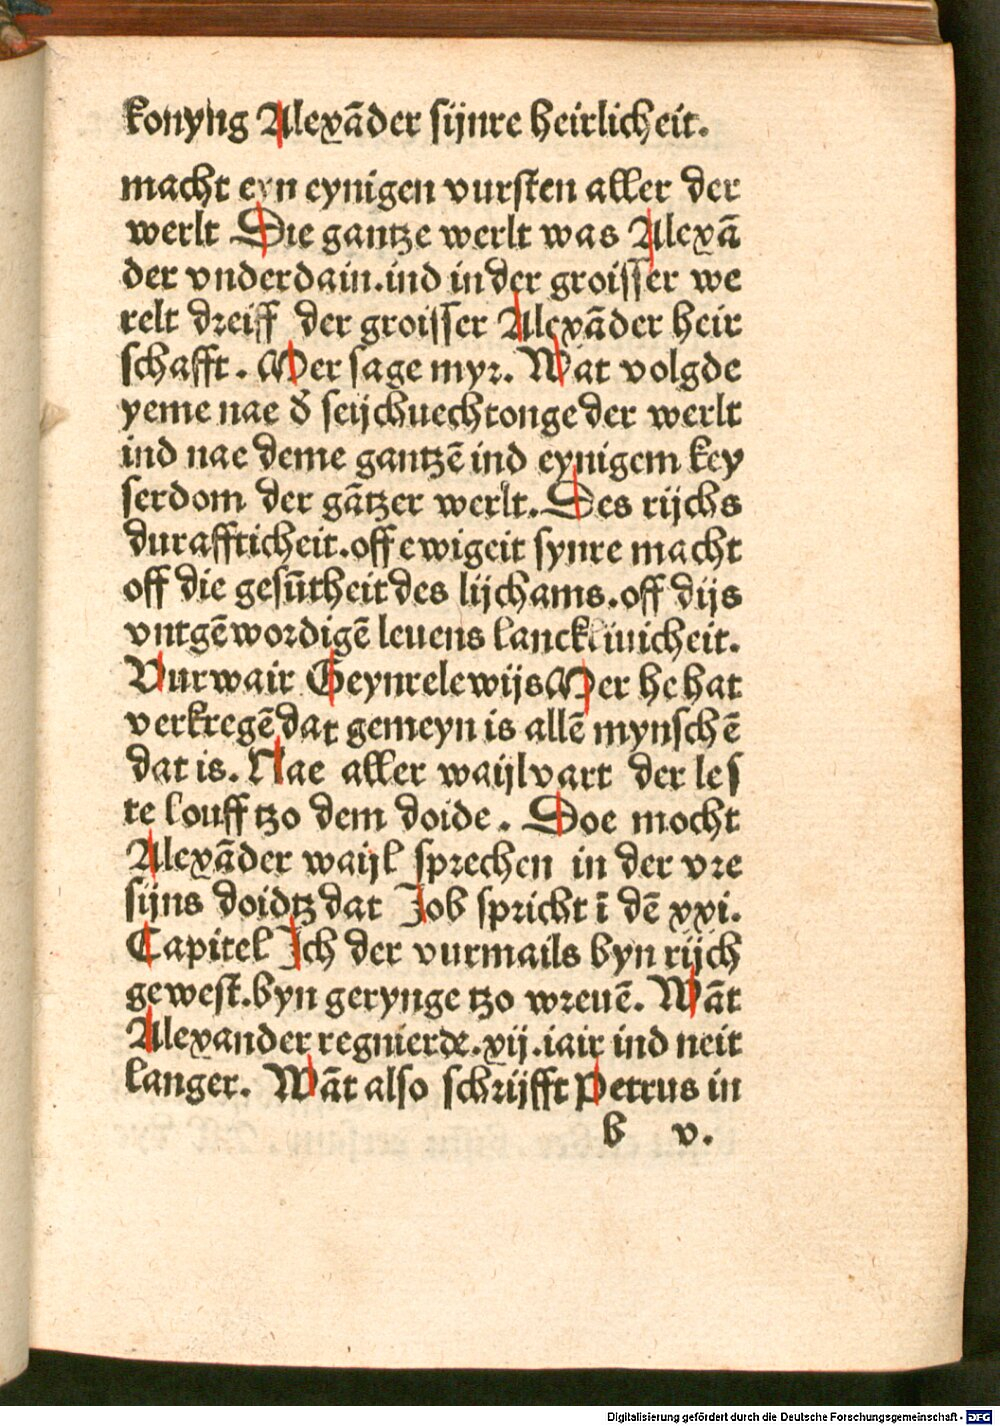 konyng Alexāder sijnre heirlicheit.
macht eyn eynigen vursten aller der
werlt Die gantze werlt was Alexā
der vnderdain.ind in der groisser we
relt dreiff der groisser Alexāder heir
schafft. Mer sage myr. Wat volgde
yeme nae d' seijchuechtonge der werlt
ind nae deme gantzē ind eynigem key
serdom der gātzer werlt. Des rijchs
duraffticheit.off ewigeit synre macht
off die gesūtheit des lijchams.off dijs
vntgēwordigē leuens lanckliuicheit.
Vurwair Geynrelewijs Mer he hat
verkregē dat gemeyn is allē mynschē
dat is. Nae aller waijlvart der les
te louff tzo dem doide. Doe mocht
Alexāder waijl sprechen in der vre
sijns doidtz dat Job spricht ī dē xxi.
Capitel Ich der vurmails byn rijch
gewest.byn gerynge tzo wreuē. Wāt
Alexander regnierde.xij.iair ind neit
langer. Wāt also schrijfft Petrus in
b v.
Digitalisierung gefördert durch die Deutsche Forschungsgemeinschaft - DFG